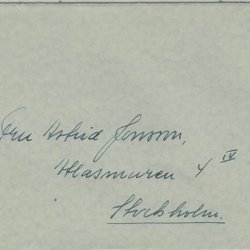 Fru Astrid Jonson,
Atlasmuren 4 IV
Stockholm.